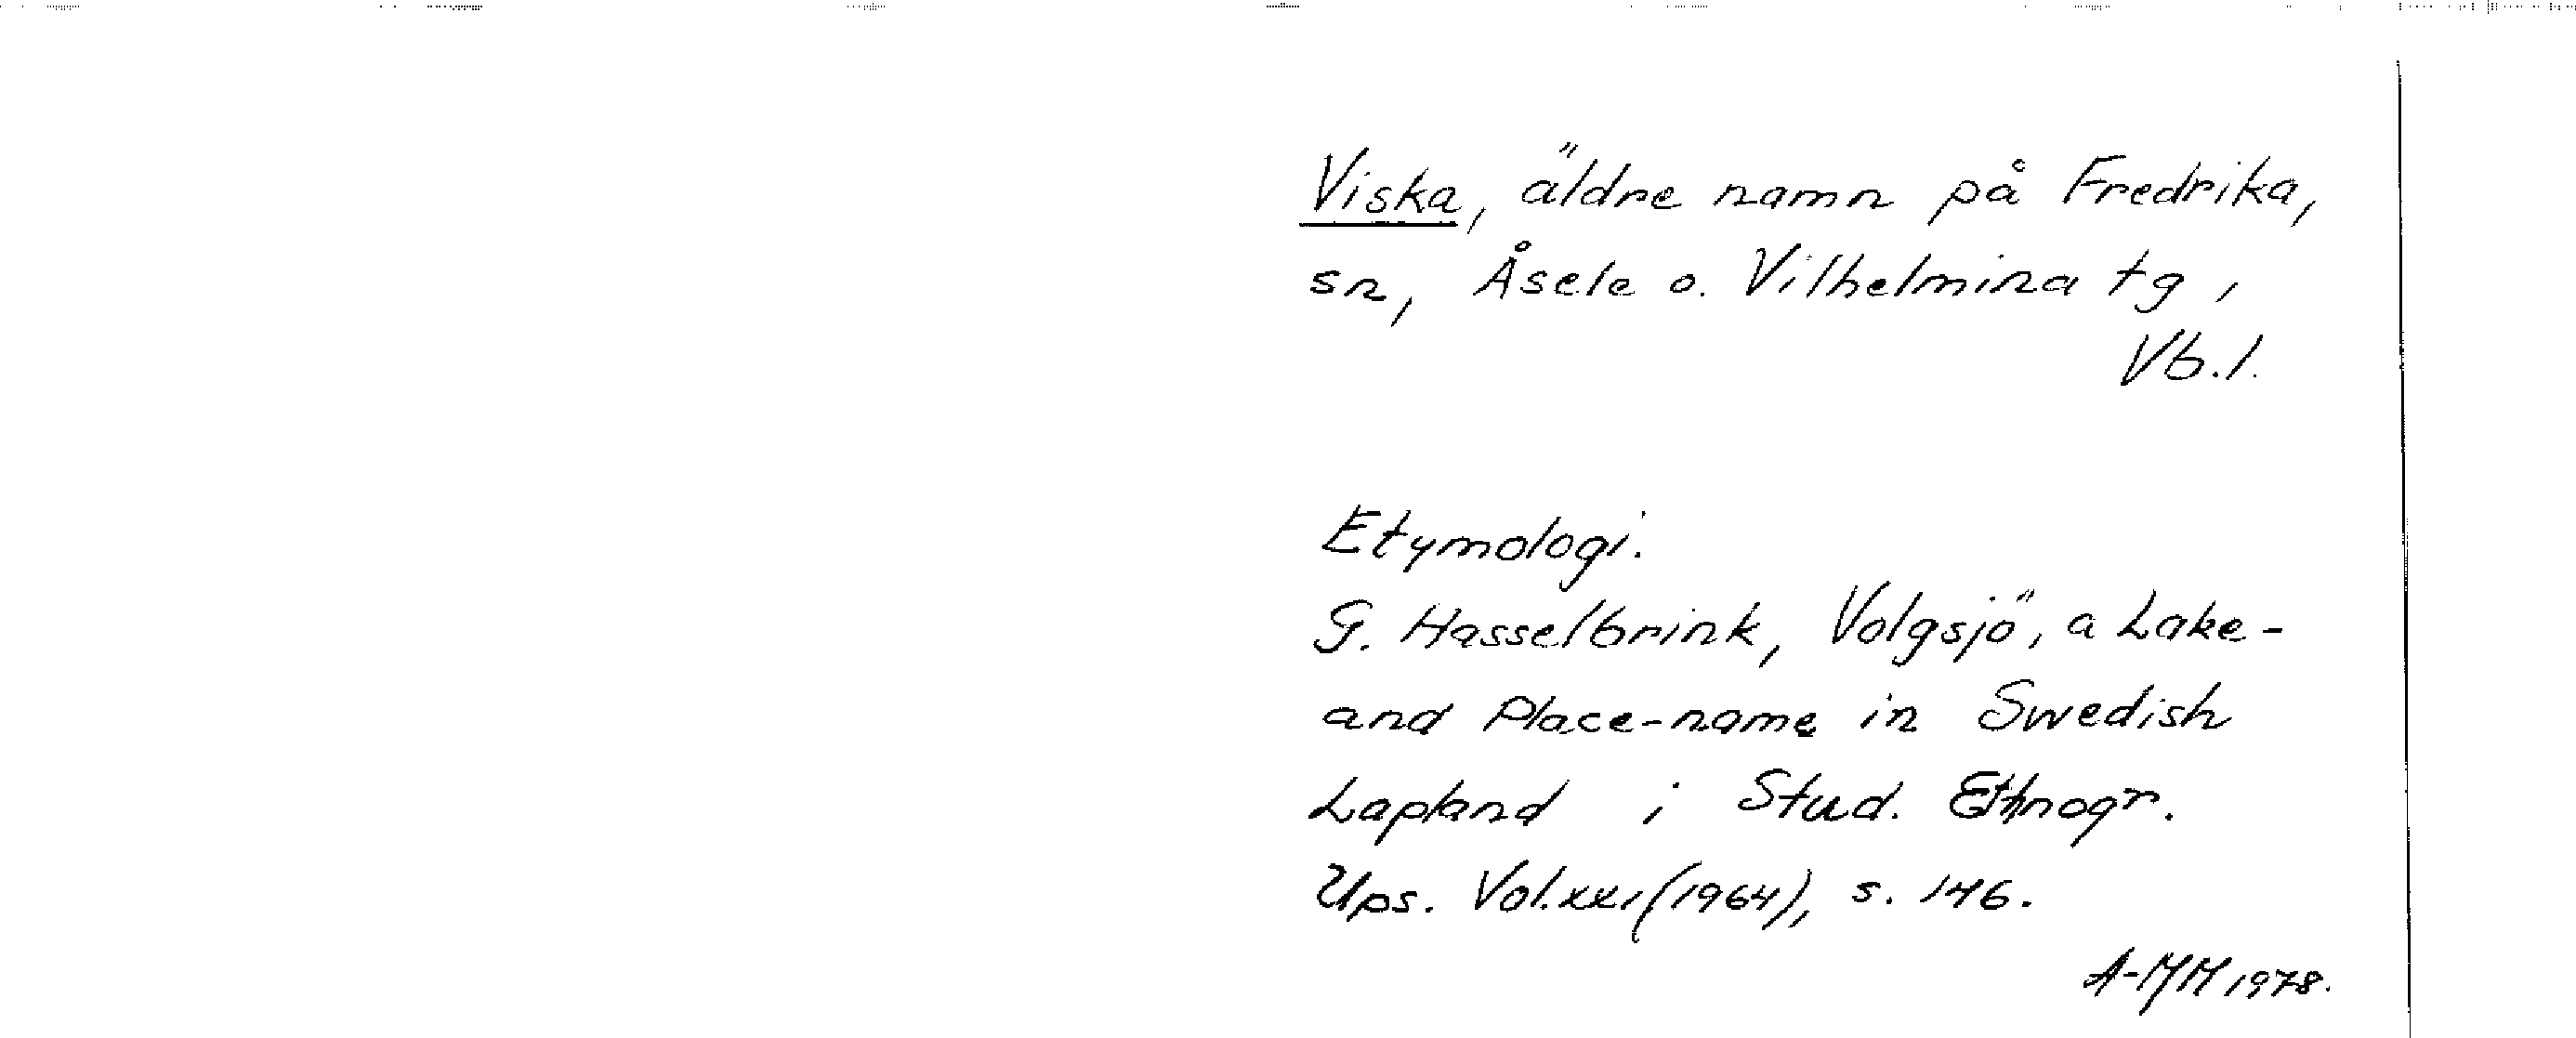 Viska, äldre namn på Fredrika,
sn, Åsele o. Vilhelmina tg,
Vb.l.
Etymologi.
G. Hasselbrink, Volgsjö, a Lake-
and Place-name in Swedish
Lapland i Stud. Ethnogr.
Ups. Vol. XXI (1964), s. 146.
A-MM 1978.